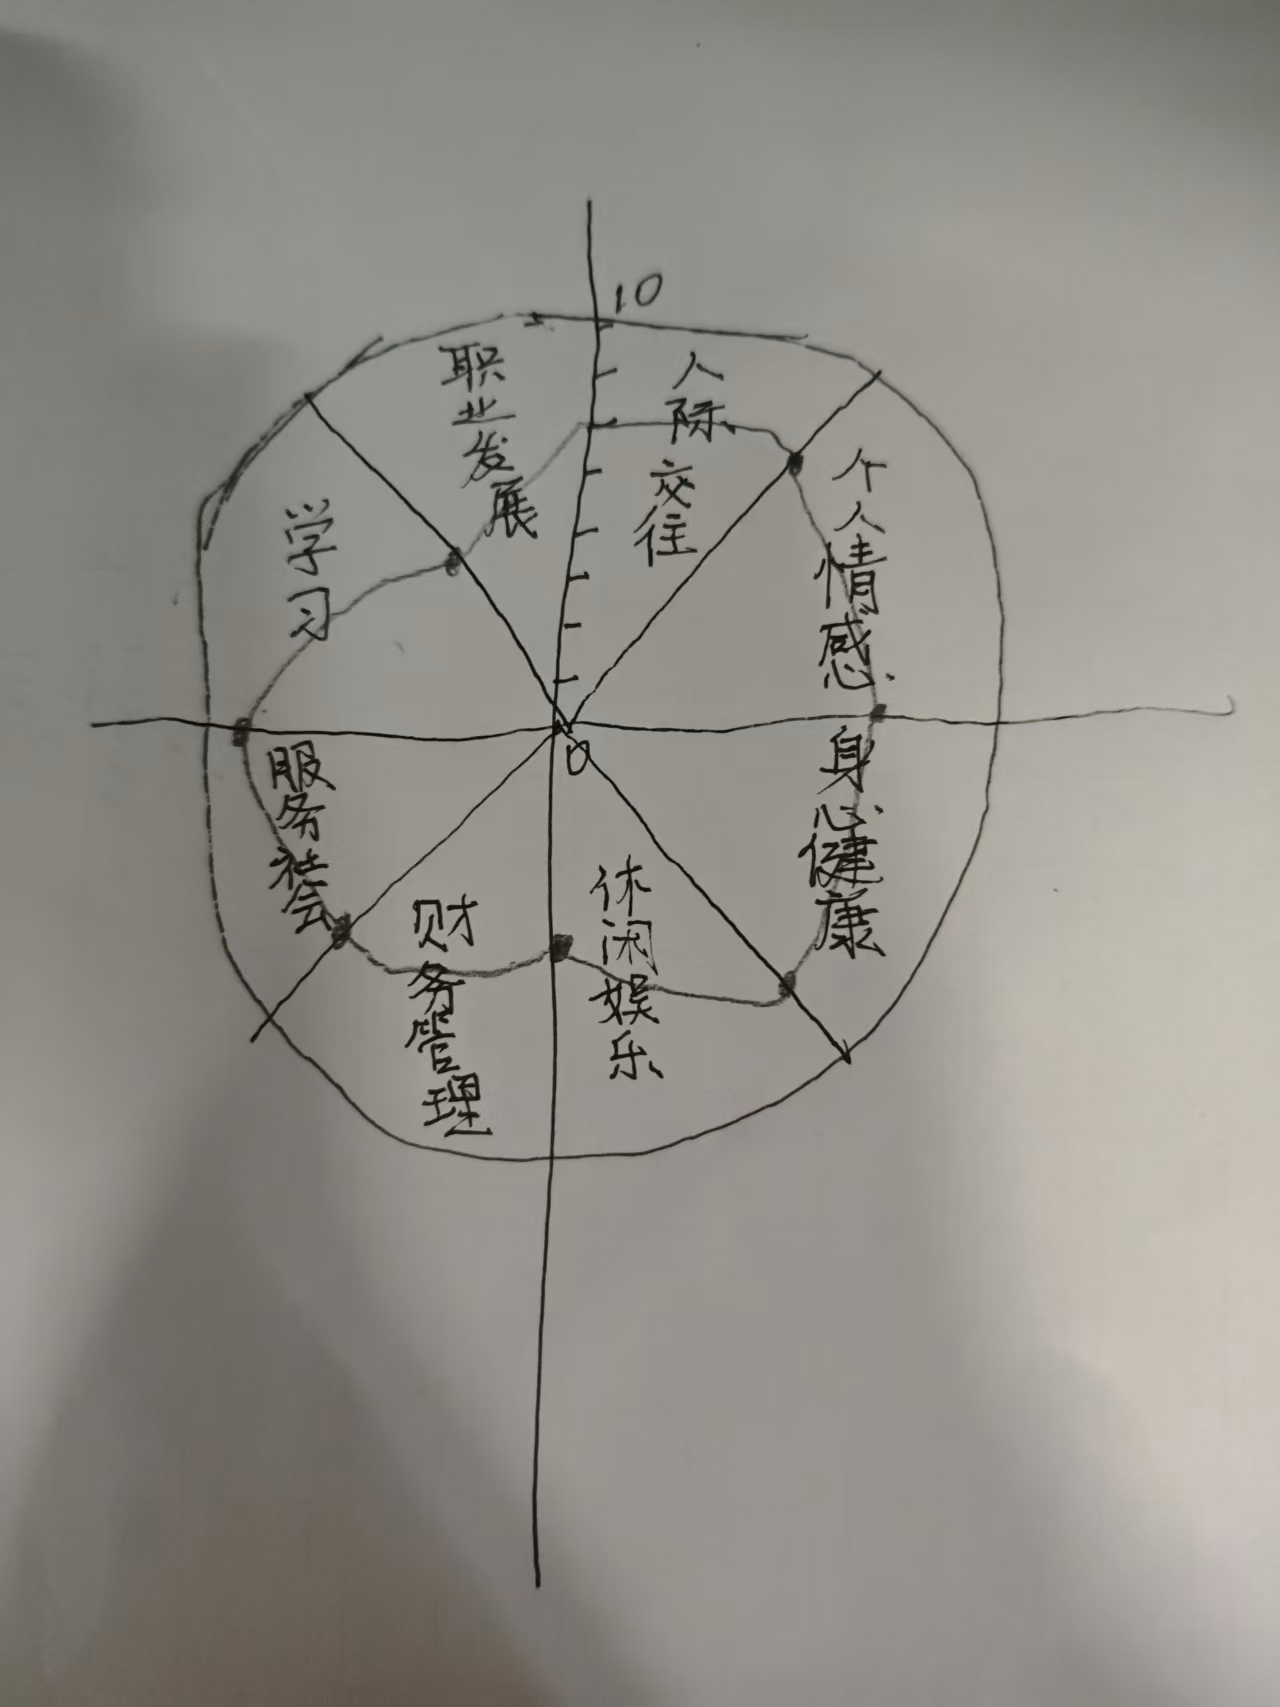 10
职业发展
人际交往
学习
个人情感
0
服务社会
身心健康
财务管理
休闲娱乐